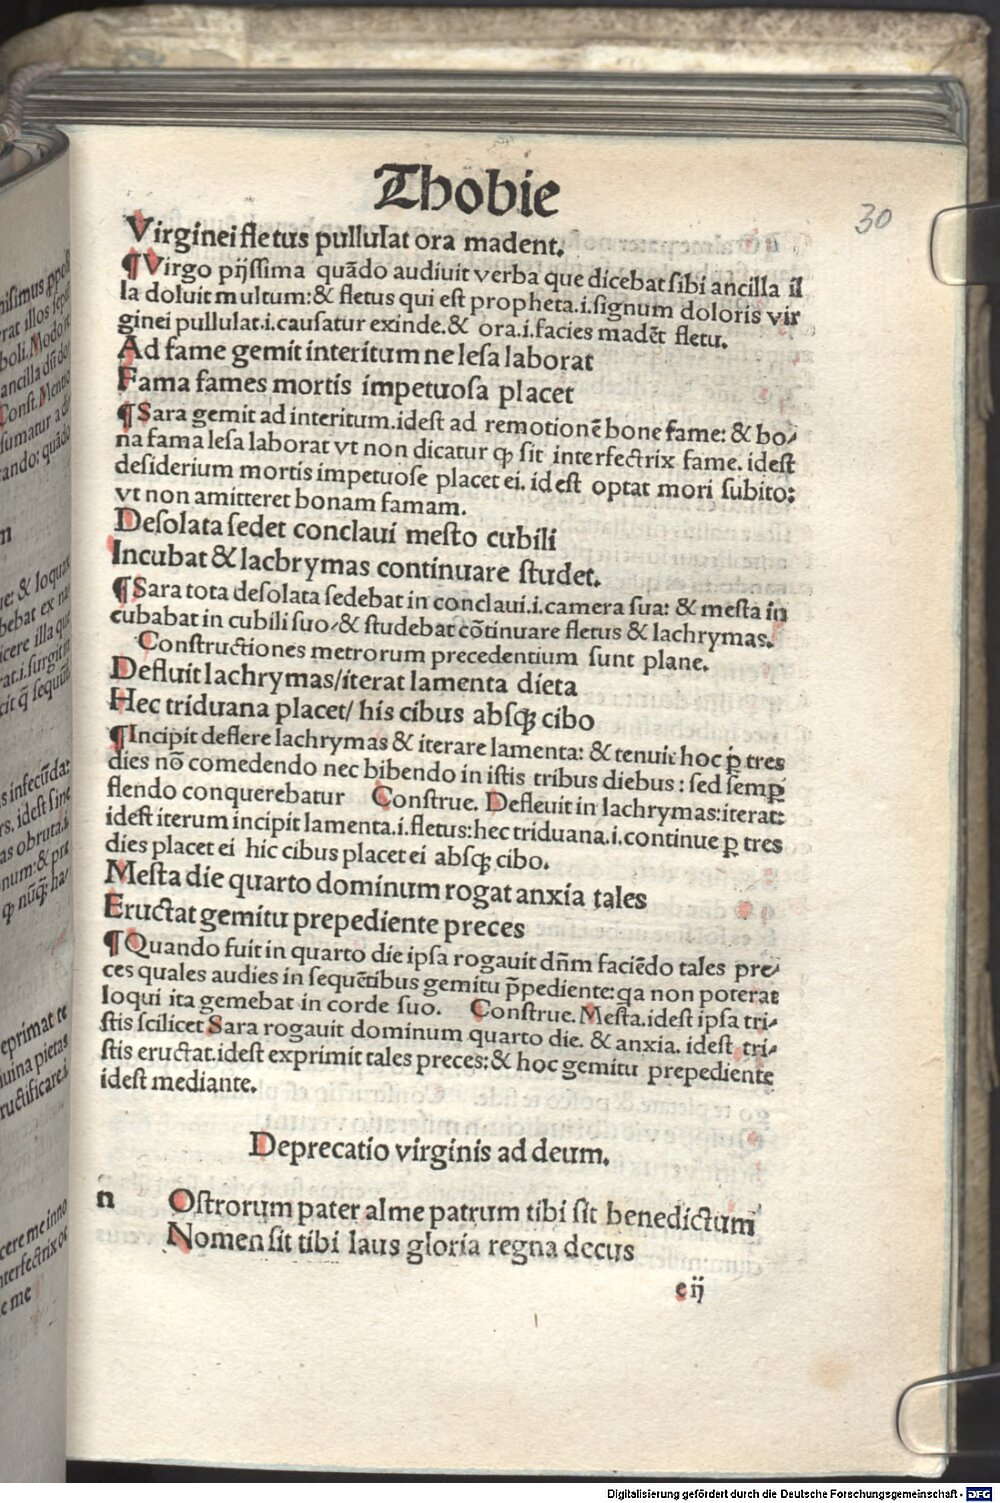 Thobie
30
Virginei fletus pullulat ora madent.
¶Virgo pijssima quãdo audiuit verba que dicebat sibi ancilla il
la doluit multum:& fletus qui est propheta.i.signum doloris vir
ginei pullulat.i.causatur exinde.& ora.i.facies madẽt fletu.
Ad fame gemit interitum ne lesa laborat
Fama fames mortis impetuosa placet
¶Sara gemit ad interitum.idest ad remotionẽ bone fame: & bo⸗
na fama lesa laborat vt non dicatur ꝙ sit interfectrix fame. idest
desiderium mortis impetuose placet ei. idest optat mori subito:
vt non amitteret bonam famam.
Desolata sedet conclaui mesto cubili
Incubat & lachrymas continuare studet.
¶Sara tota desolata sedebat in conclaui.i.camera sua: & mesta in
cubabat in cubili suo/& studebat cõtinuare fletus & lachrymas.
Constructiones metrorum precedentium sunt plane.
Defluit lachrymas/iterat lamenta dieta
Hec triduana placet/ his cibus absqꝫ cibo
¶Incipit deflere lachrymas & iterare lamenta: & tenuit hoc ꝑ tres
dies nõ comedendo nec bibendo in istis tribus diebus : sed semꝑ
flendo conquerebatur Construe. Defleuit in lachrymas:iterat:
idest iterum incipit lamenta.i.fletus:hec triduana.i.continue ꝑ tres
dies placet ei hic cibus placet ei absqꝫ cibo.
Mesta die quarto dominum rogat anxia tales
Eructat gemitu prepediente preces
¶Quando fuit in quarto die ipsa rogauit dñm faciẽdo tales pre⸗
ces quales audies in sequẽtibus gemitu p̃pediente:qa non poterat
loqui ita gemebat in corde suo. Construe. Mesta.idest ipsa tri⸗
stis scilicet Sara rogauit dominum quarto die. & anxia. idest tri⸗
stis eructat.idest exprimit tales preces:& hoc gemitu prepediente
idest mediante.
Deprecatio virginis ad deum.
n Ostrorum pater alme patrum tibi sit benedictum
Nomen sit tibi laus gloria regna decus
e ij
Digitalisierung gefördert durch die Deutsche Forschungsgemeinschaft - DFG